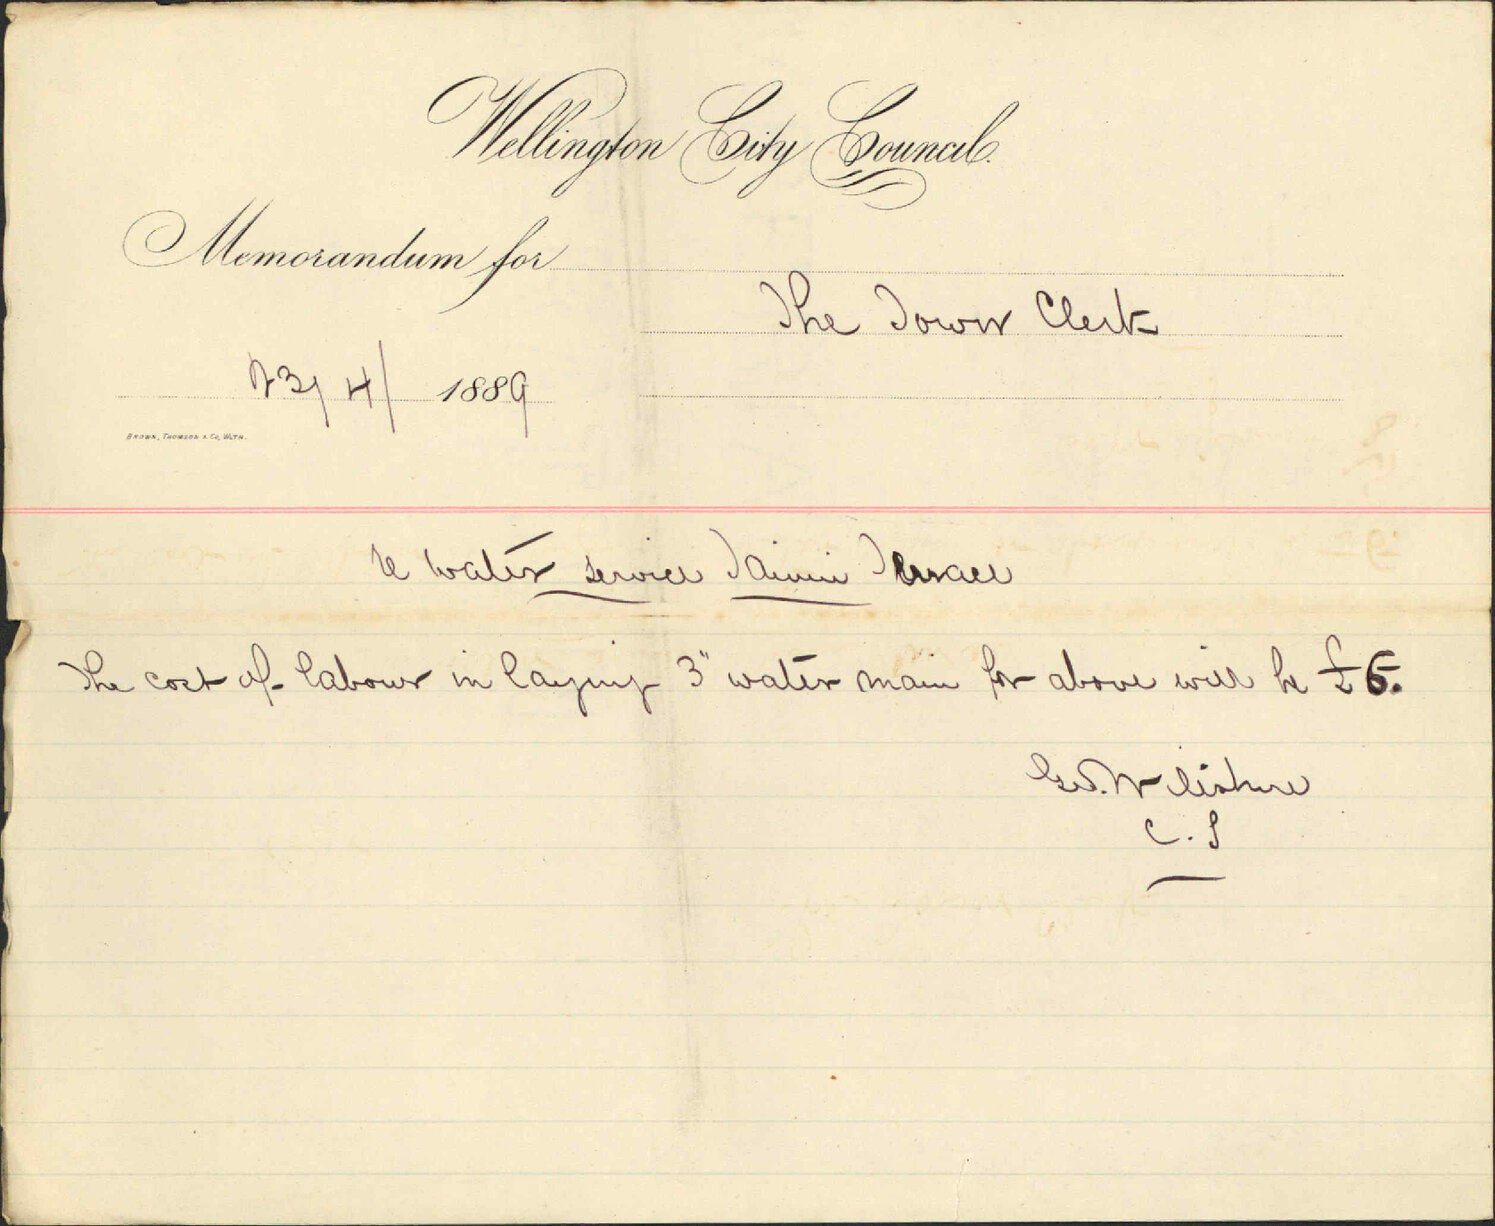 Wellington City Council.
Memorandum for
The Town Clerk
23/4/ 1889
BROWN, THOMSON & CO, WGTN.
re water service Tainui Terrace
The cost of labour in laying 3" water main for above will be £6.
Geo. Wiltshire
C. S